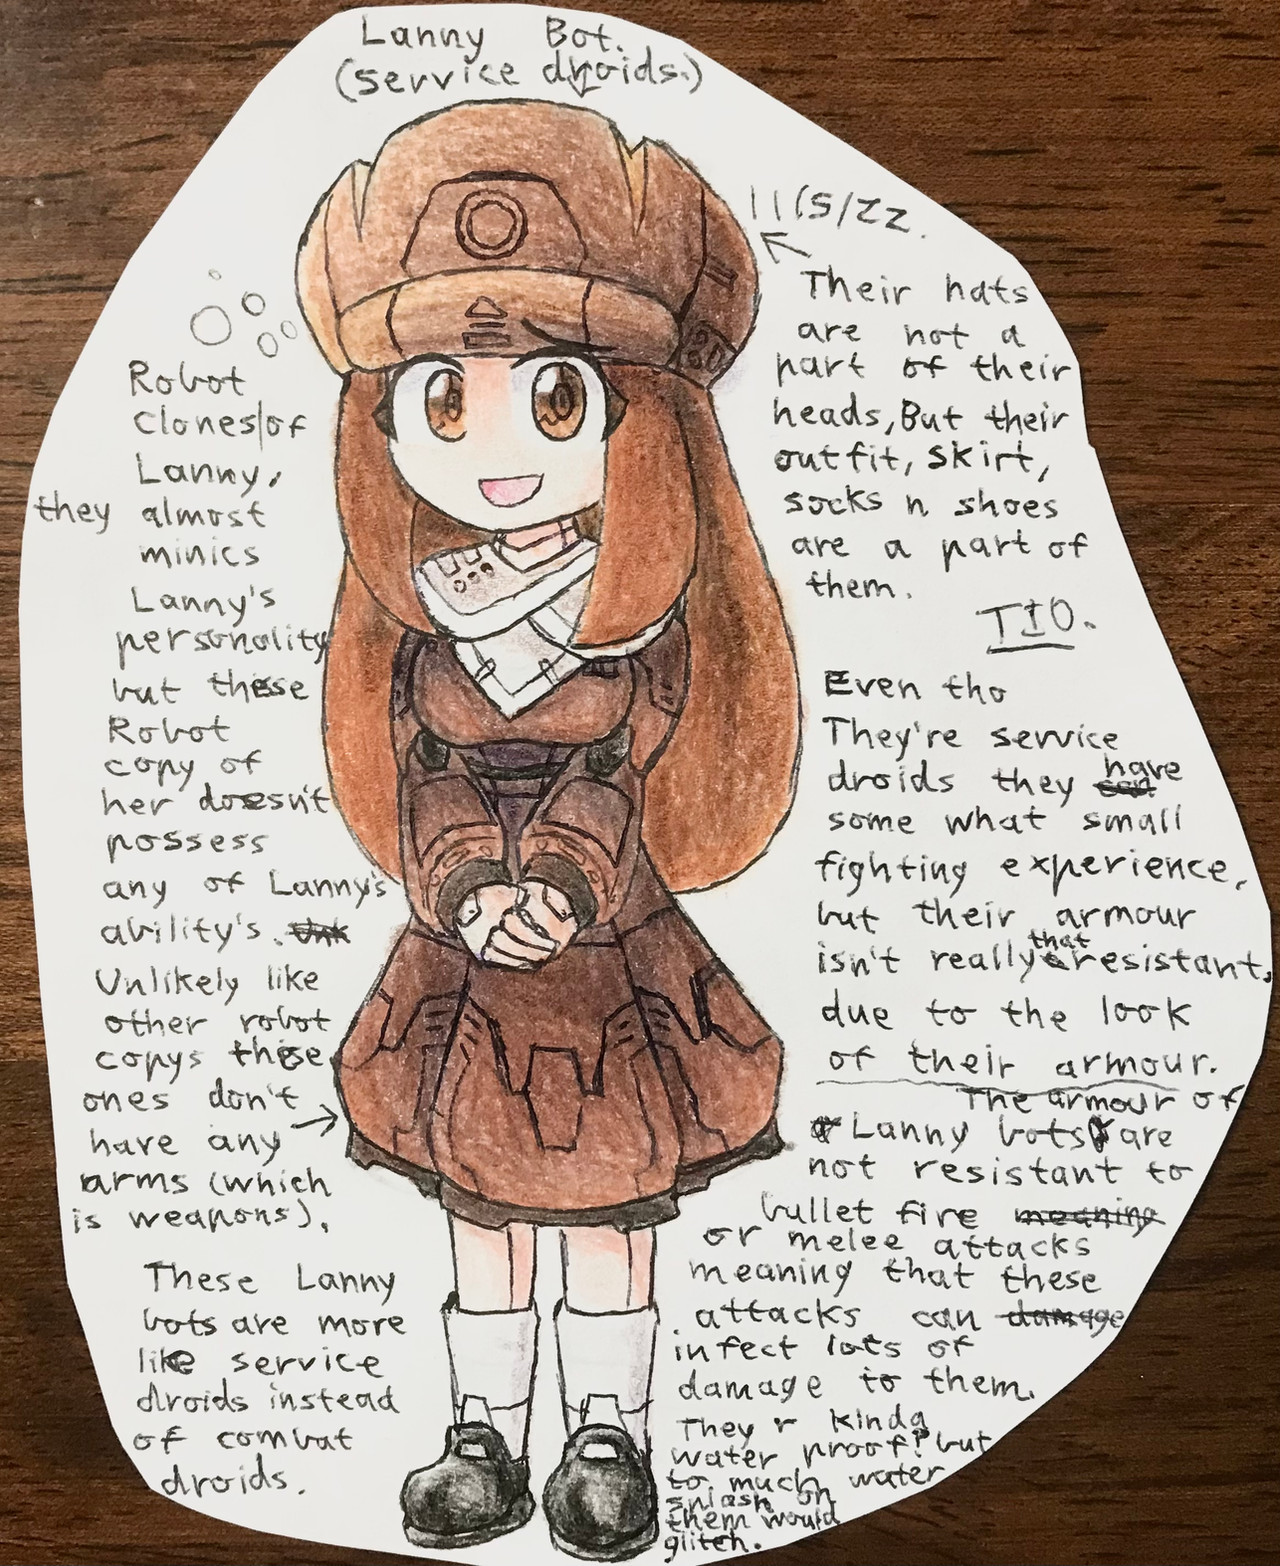 Lanny Bot.
(service droids.)
11/5/22.
Robot
clones of
Lanny,
they almost
minics
Lanny's
personality
but these
Robot
copy of
her doesn't
possess
any of Lanny's
ability's.
Unlikely like
other robot
copys these
ones don't
have any
arms (which
is weapons).
These Lanny
bots are more
like service
droids instead
of combat
droids.
Their hats
are not a
part of their
heads, But their
outfit, skirt,
socks n shoes
are a part of
them.
Even tho
They're service
droids they have
some what small
fighting experience,
but their armour
isn't really that resistant,
due to the look
of their armour.
The armour of
Lanny bots are
not resistant to
bullet fire meaning
or melee attacks
meaning that these
attacks can damage
infect lots of
damage to them.
They r kinda
water proof? but
to much water
splash on
them would
glitch.